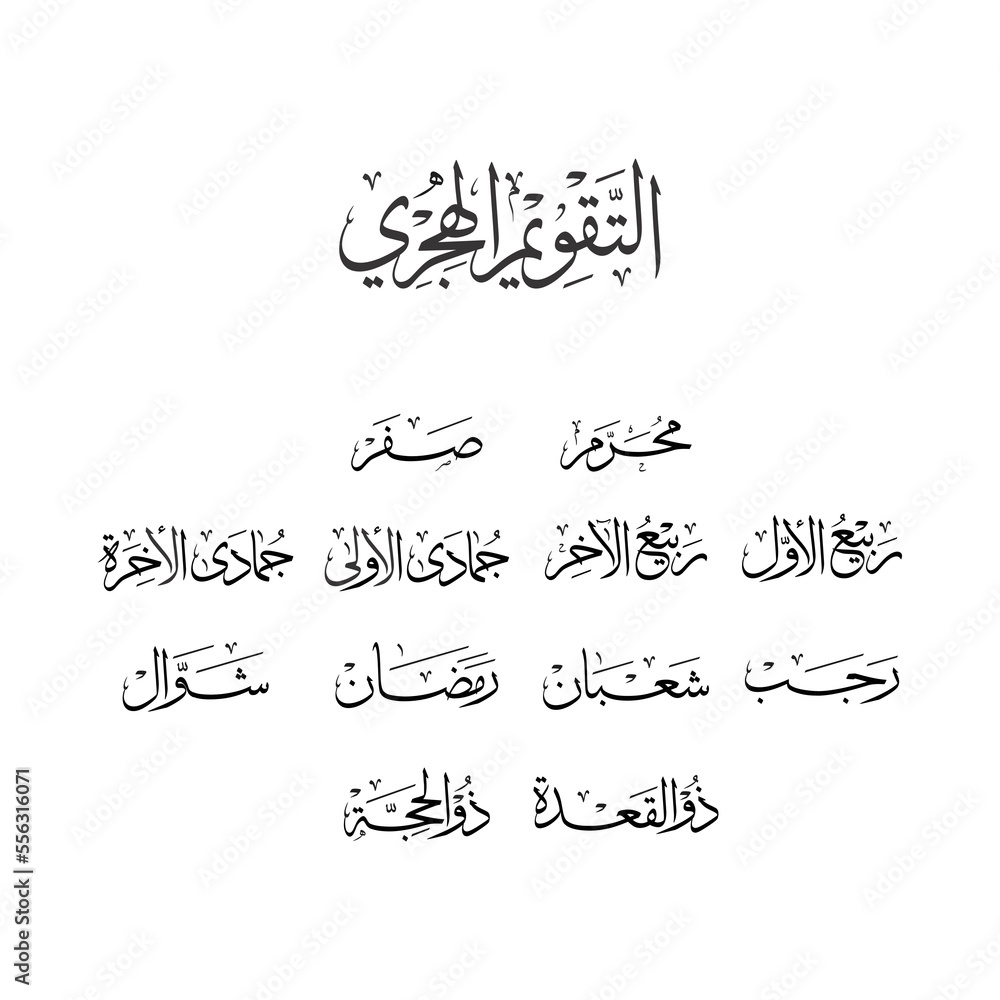 التَّقْوِيْمُ الهِجْرِي
مُحَرَّم صَفَر
رَبِيْعُ الأَوَّل رَبِيْعُ الآخِر جُمَادَى الأُوْلَى جُمَادَى الأَخِرَة
رَجَب شَعْبَان رَمَضَان شَوَّال
ذُوْالقَعْدَة ذُوْالحِجَّة
Adobe Stock | #556316071